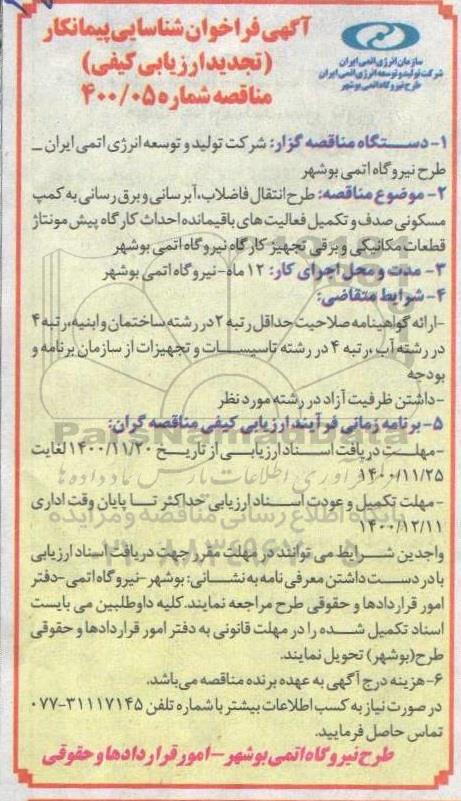 آگهی فراخوان شناسایی پیمانکار
(تجدید ارزیابی کیفی)
مناقصه شماره ۴۰۰/۰۵
سازمان انرژی اتمی ایران
شرکت تولید و توسعه انرژی اتمی ایران
طرح نیروگاه اتمی بوشهر
۱- دستگاه مناقصه گزار: شرکت تولید و توسعه انرژی اتمی ایران –
طرح نیروگاه اتمی بوشهر
۲- موضوع مناقصه: طرح انتقال فاضلاب، آبرسانی و برق رسانی به کمپ
مسکونی صدف و تکمیل فعالیت های باقیمانده احداث کارگاه پیش مونتاژ
قطعات مکانیکی و برقی تجهیز کارگاه نیروگاه اتمی بوشهر
۳- مدت و محل اجرای کار: ۱۲ ماه- نیروگاه اتمی بوشهر
۴- شرایط متقاضی:
-ارائه گواهینامه صلاحیت حداقل رتبه ۲ در رشته ساختمان و ابنیه، رتبه ۴
در رشته آب ، رتبه ۴ در رشته تاسیسات و تجهیزات از سازمان برنامه و
بودجه
-داشتن ظرفیت آزاد در رشته مورد نظر
۵- برنامه زمانی فرآیند ارزیابی کیفی مناقصه گران:
-مهلت دریافت اسناد ارزیابی از تاریخ ۱۴۰۰/۱۱/۲۰ لغایت
۱۴۰۰/۱۱/۲۵
-مهلت تکمیل و عودت اسناد ارزیابی حداکثر تا پایان وقت اداری
۱۴۰۰/۱۲/۱۱
واجدین شرایط می توانند در مهلت مقرر جهت دریافت اسناد ارزیابی
با در دست داشتن معرفی نامه به نشانی: بوشهر -نیروگاه اتمی -دفتر
امور قراردادها و حقوقی طرح مراجعه نمایند. کلیه داوطلبین می بایست
اسناد تکمیل شده را در مهلت قانونی به دفتر امور قراردادها و حقوقی
طرح(بوشهر) تحویل نمایند.
۶- هزینه درج آگهی به عهده برنده مناقصه می باشد.
در صورت نیاز به کسب اطلاعات بیشتر با شماره تلفن ۳۱۱۱۷۱۴۵-۰۷۷
تماس حاصل فرمایید.
طرح نیروگاه اتمی بوشهر – امور قراردادها و حقوقی
ParsNamadData